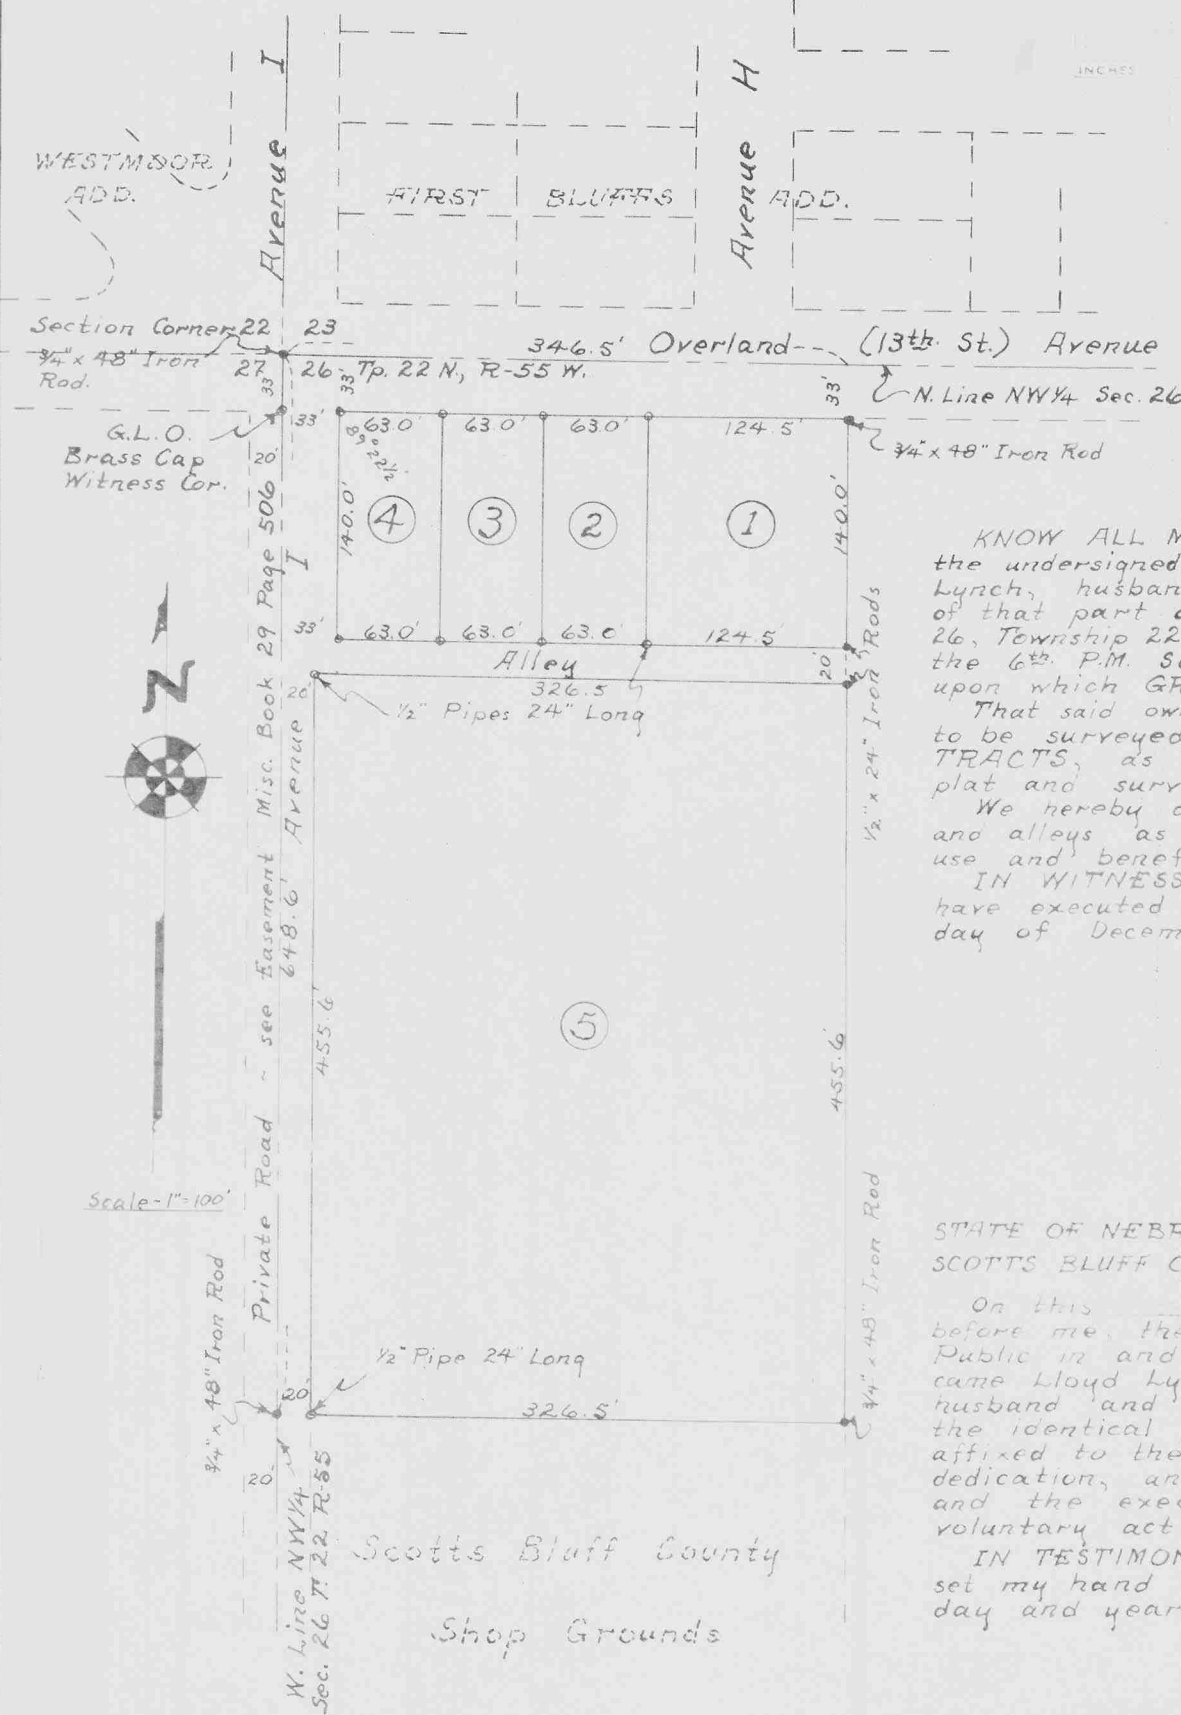 INCHES
Avenue I
Avenue H
WESTMOOR
ADD.
FIRST BLUFFS ADD.
Section Corner
3/4" x 48" Iron
Rod.
22 23
27 26
346.5' Overland (13th. St.) Avenue
Tp. 22 N., R-55 W.
N. Line NW1/4 Sec. 26
33'
33'
33'
G.L.O.
Brass Cap
Witness Cor.
33'
20'
63.0' 63.0' 63.0' 124.5'
3/4" x 48" Iron Rod
140.0'
4 3 2 1
140.0'
33'
63.0' 63.0' 63.0' 124.5
Alley
20'
326.5
20'
1/2" Pipes 24" Long
1/2" x 24" Iron Rods
Private Road - see Easement Misc. Book 29 Page 506
648.6'
Avenue I
455.6'
5
455.6'
Scale-1"=100'
3/4" x 48" Iron Rod
3/4" x 48" Iron Rod
1/2" Pipe 24" Long
20'
326.5'
20'
W. Line NW1/4
Sec. 26 T. 22 R-55
Scotts Bluff County
Shop Grounds
KNOW ALL M
the undersigned
Lynch, husban
of that part
26, Township 22
the 6th. P.M. S
upon which GR
That said ow
to be surveyed
TRACTS, as
plat and surv
We hereby d
and alleys as
use and benef
IN WITNESS
have executed
day of Decem
STATE OF NEBR
SCOTTS BLUFF C
On this
before me, the
Public in and
came Lloyd Ly
husband and
the identical
affixed to the
dedication, an
and the exec
voluntary act
IN TESTIMON
set my hand
day and year